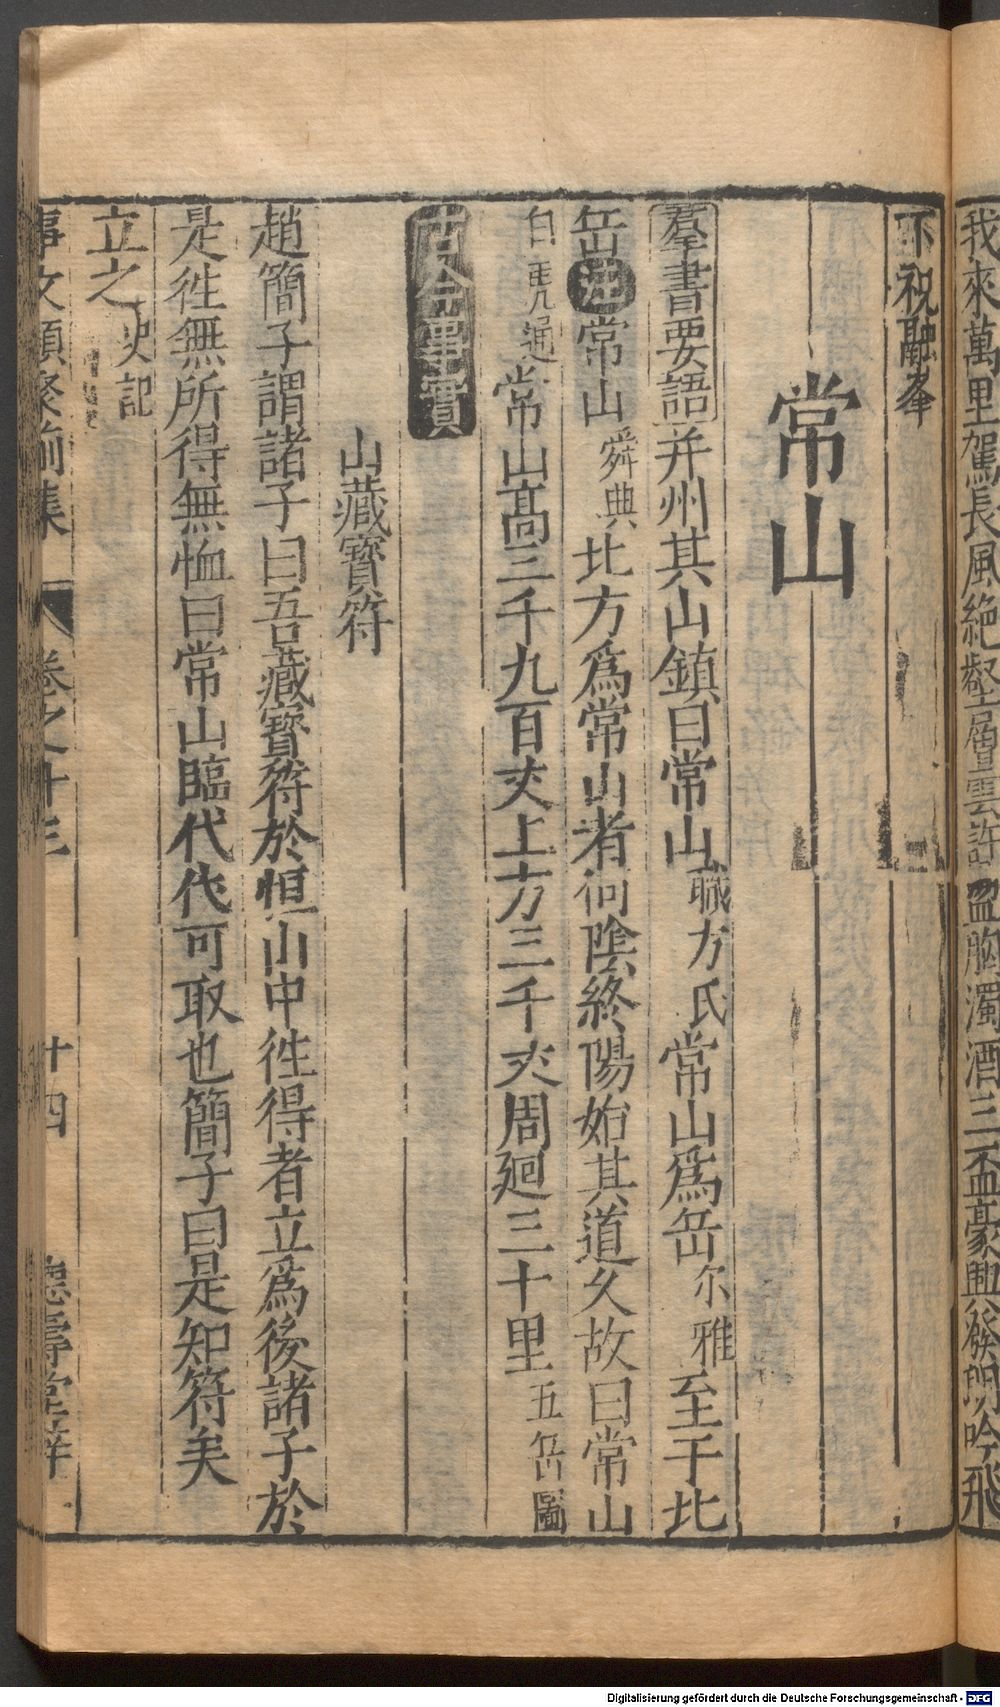 我來萬里駕長風絶壑層雲許盪胸濁酒三盃豪興發朗吟飛
下祝融峯
常山
羣書要語并州其山鎮曰常山職方氏常山爲岳尔雅至于北
岳注常山舜典北方爲常山者何陰終陽始其道久故曰常山
白虎通常山高三千九百丈上方三千丈周廻三十里五岳圖
古今事實
山藏寳符
趙簡子謂諸子曰吾藏寳符於恒山中徃得者立爲後諸子於
是徃無所得無恤曰常山臨代代可取也簡子曰是知符矣
立之史記
事文類聚前集
卷之十三
十四
德壽堂梓
Digitalisierung gefördert durch die Deutsche Forschungsgemeinschaft - DFG